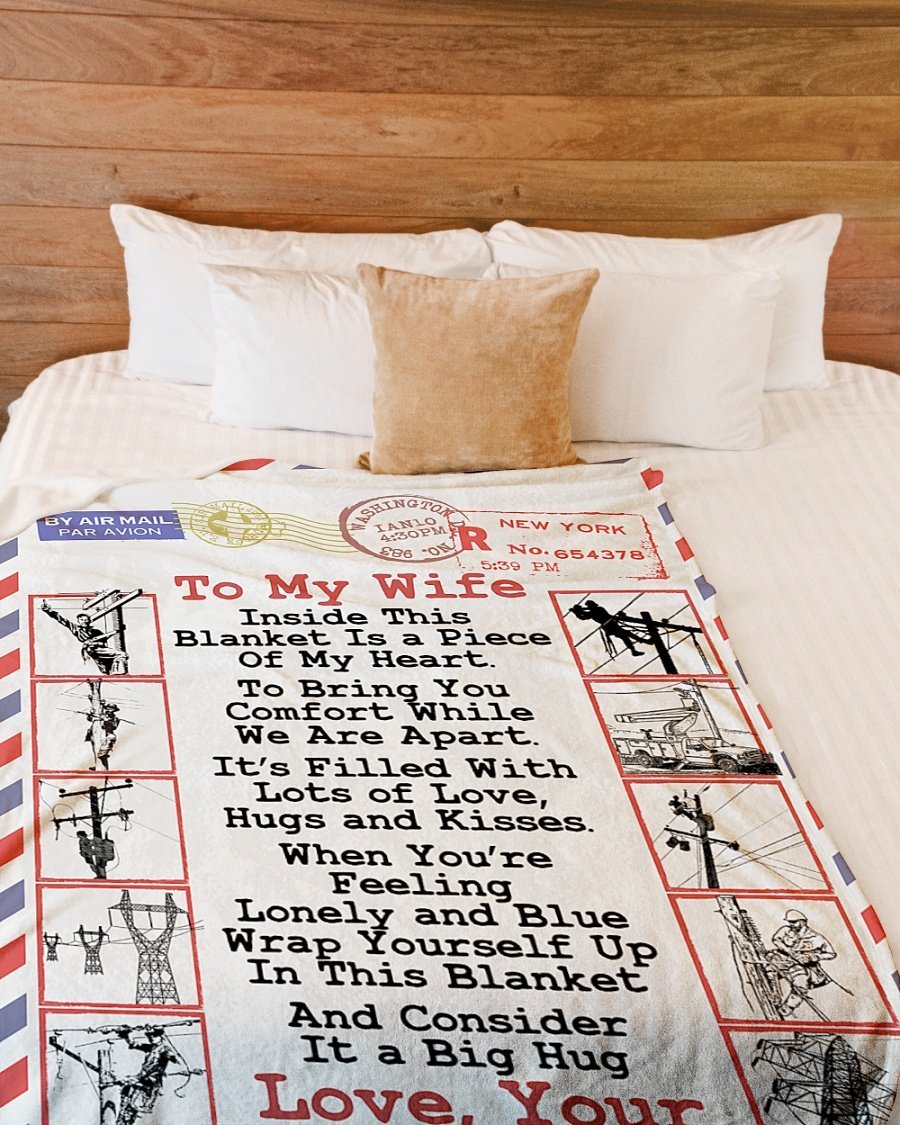 BY AIR MAIL
PAR AVION
WASHINGTON
IANLO
4:30PM
NO. 983
R
NEW YORK
No. 654378
5:39 PM
To My Wife
Inside This
Blanket Is a Piece
Of My Heart.
To Bring You
Comfort While
We Are Apart.
It's Filled With
Lots of Love,
Hugs and Kisses.
When You're
Feeling
Lonely and Blue
Wrap Yourself Up
In This Blanket
And Consider
It a Big Hug
Love, Your